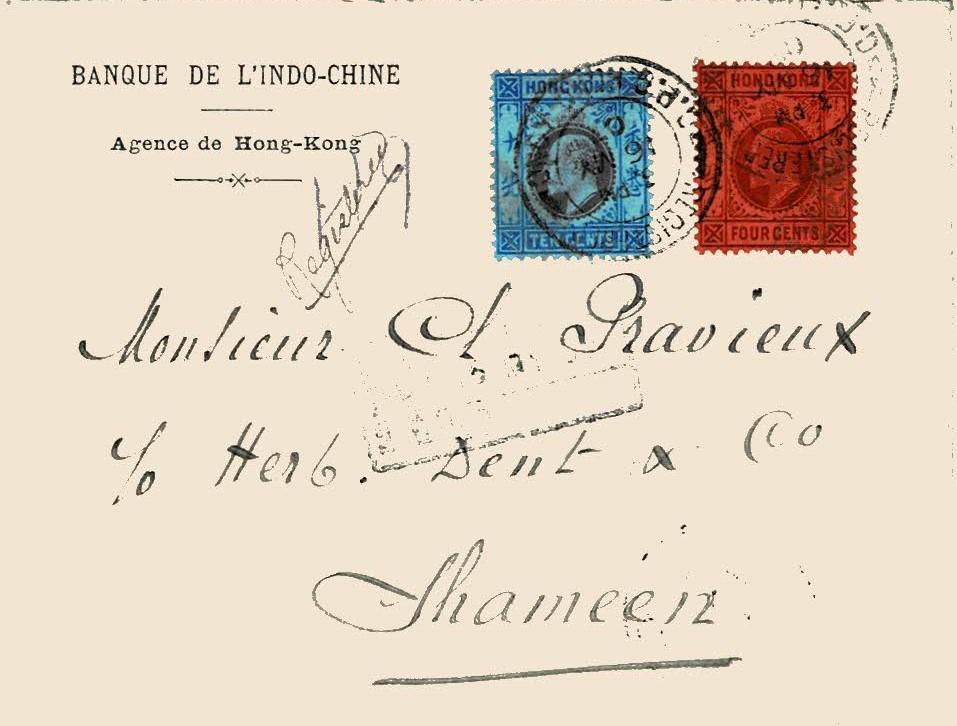 BANQUE DE L'INDO-CHINE
Agence de Hong-Kong
HONG KONG
TEN CENTS
HONG KONG
FOUR CENTS
Monsieur Ch. Pravieux
c/o Herb. Dent & Co
Shaméen